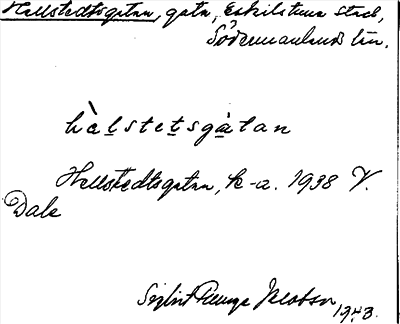 Hellstedtsgatan, gata, Eskilstuna stad,
Södermanlands län.
hὲlstetsgàtan
Hellstedtsgatan, k-a. 1938 V.
Dale
Jacobson 1943.